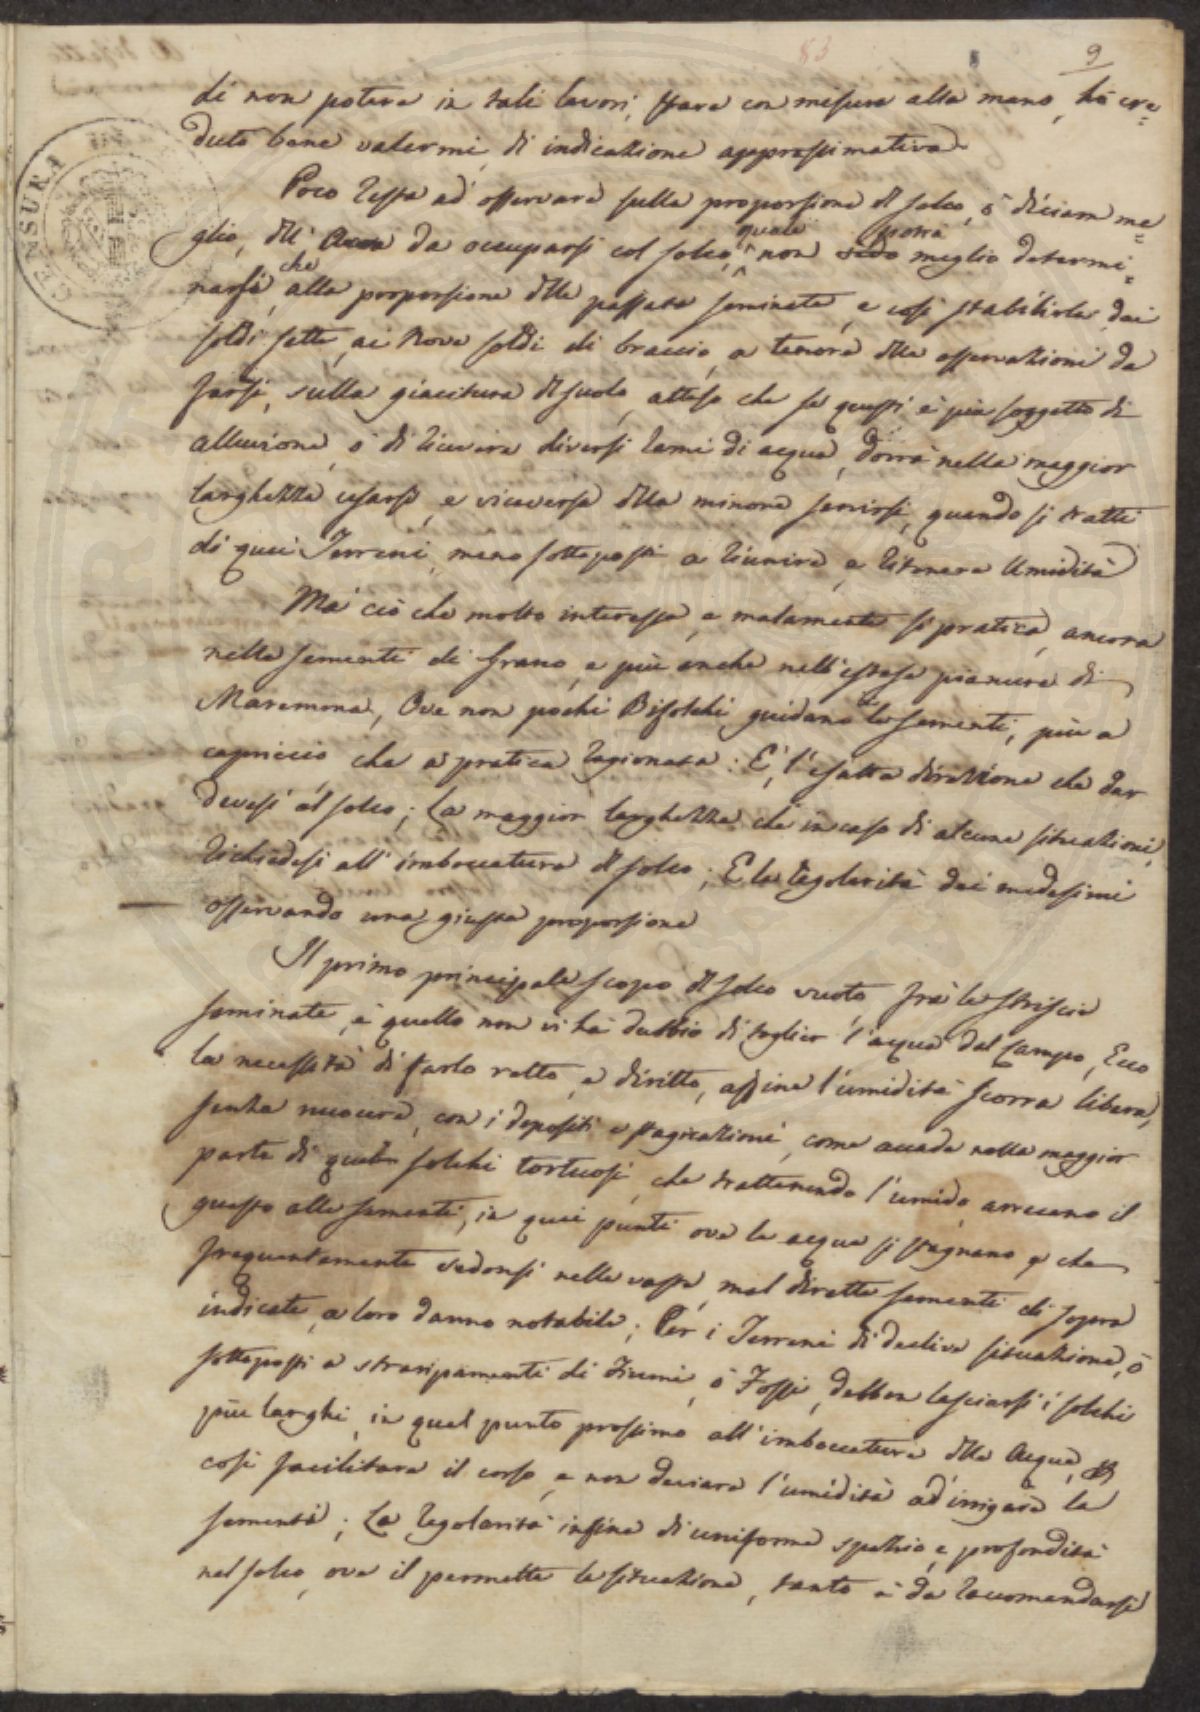 83
9
di non potere in tali lavori, stare con misura alla mano, hò cre=
duto bene valermi di indicazione approssimativa.
Poco resta ad' osservare sulla proporzione dl solco, ò diciam me=
glio, dll' Area da occuparsi col solco, quale non vedo potrà meglio determi=
narsi, che alla proporzione dlle passate seminate, e così stabilirla dai
soldi sette, ai Nove soldi di braccio, a tenore dlle osservazioni da
farsi, sulla giacitura dl suolo, atteso che se questi è più soggetto di
alluvione, ò di ricevere diversi rami di acqua, dovrà nella maggior
larghezza usarsi, e viceversa dlla minore servirsi, quando si tratti
di quei Terreni, meno sottoposti a riunire, e ritenere Umidità
Mà ciò che molto interessa, e malamente si pratica, ancora
nelle sementi di Grano, e più anche nell' estese pianure di
Maremma, Ove non pochi Bifolchi guidano le sementi, più a
capriccio che a pratica ragionata: E' l'esatta direzione che dar
devesi al solco; La maggior larghezza che in caso di alcune situazioni,
richiedesi all' imboccatura dl solco; E la regolarità dei medesimi
osservando una giusta proporzione
Il primo principale scopo dl solco vuoto, frà le striscie
seminate, è quello non vi hà dubbio di toglier l'acqua dal Campo, Ecco
la necessità di farlo retto, e diritto, affine l'umidità scorra libera,
senza nuocere, con i depositi e stagnazioni, come accade nella maggior
parte di quelli solchi tortuosi, che trattenendo l'umido, arrecano il
guasto alle sementi, in quei punti ove le acque si stagnano, e che
frequentemente vedonsi nelle vaste, mal dirette sementi di sopra
indicate, a loro danno notabile; Per i Terreni di declive situazione, ò
sottoposti a straripamenti di Fiumi, ò Fossi, debbon lasciarsi i solchi
più larghi, in quel punto prossimo all' imboccatura dlle Acque,
così facilitare il corso, e non deviare l'umidità ad irrigare la
sementa; La regolarità infine di uniforme spazio, e profondità
nel solco, ove il permette la situazione, tanto è da raccomandarsi
CENSUEI